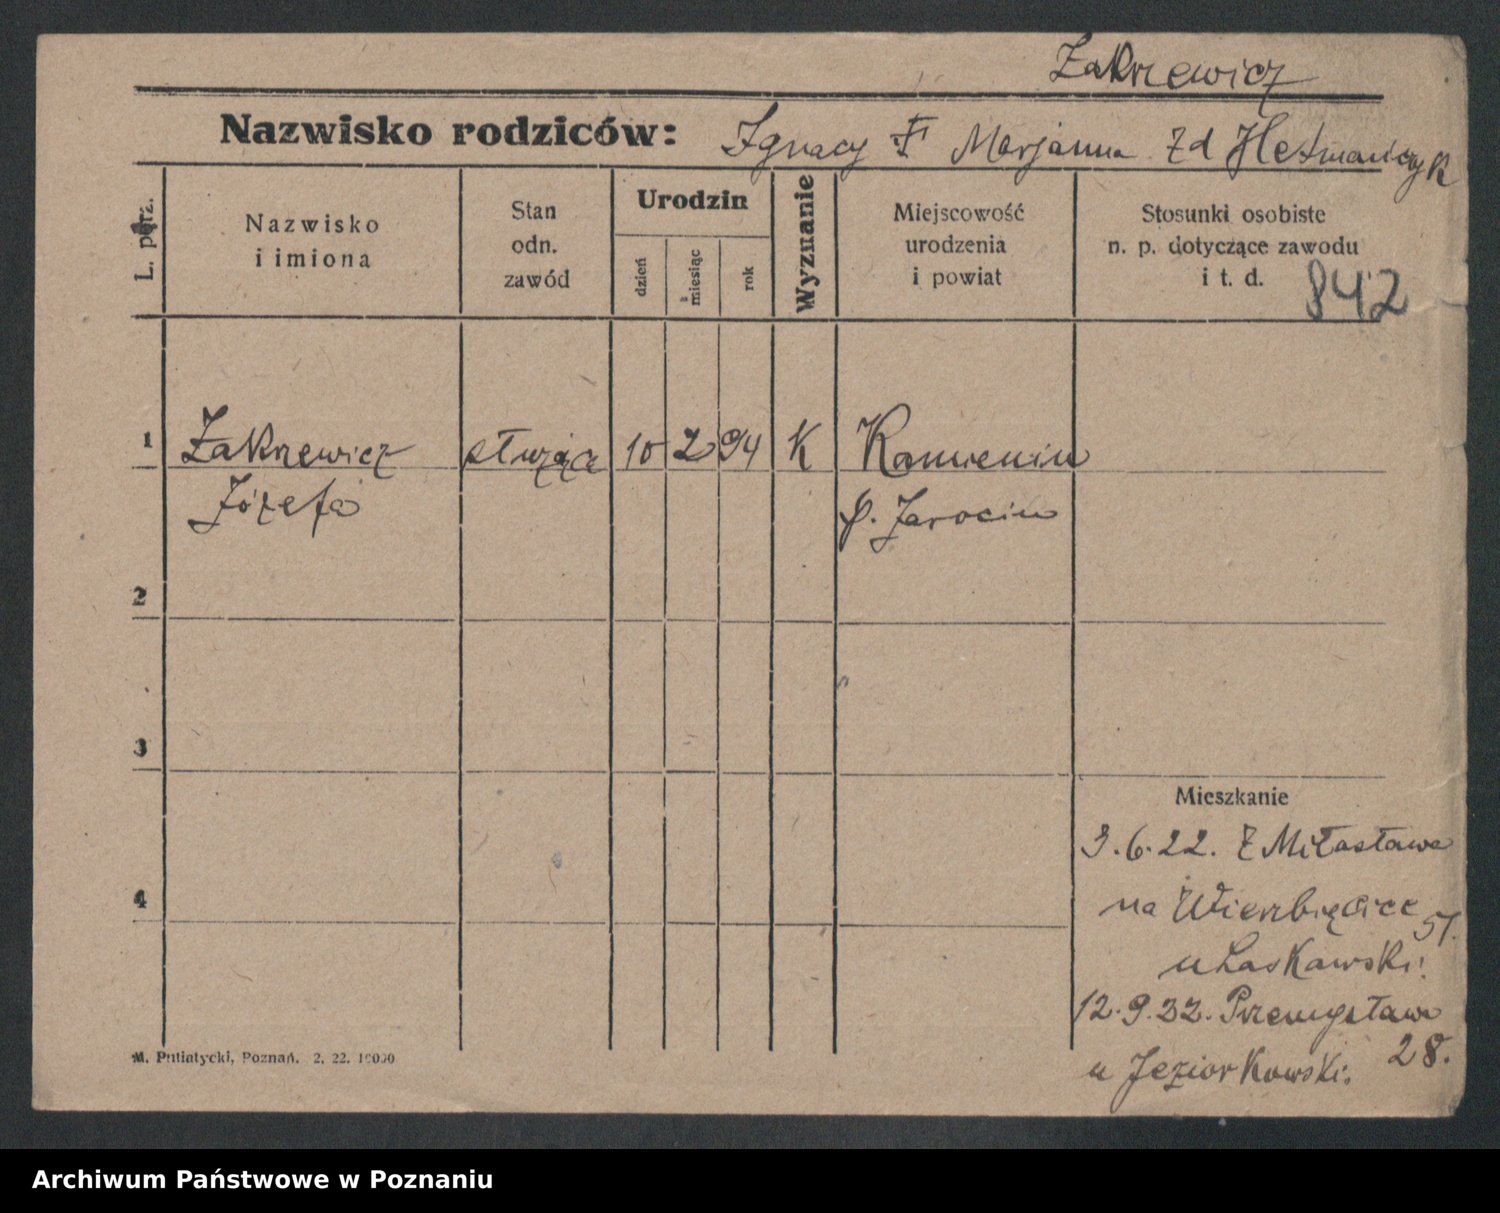 Zakrzewicz
Nazwisko rodziców: Ignacy Marjanna zd Hetmańczyk
L. porz.
Nazwisko
i imiona
Stan
odn.
zawód
Urodzin
dzień
miesiąc
rok
Wyznanie
Miejscowość
urodzenia
i powiat
Stosunki osobiste
n. p. dotyczące zawodu
i t. d.
842
1 Zakrzewicz służąca 10 2 94 K Kamienin
Józefa p. Jarocin
2
3
4
Mieszkanie
3.6.22. z Miłosława
na Wierzbięcice 51.
u Laskawski.
12.9.22. Przemysława
28.
u Jeziorkowski.
M. Putiatycki, Poznań. 2. 22. 10000
Archiwum Państwowe w Poznaniu